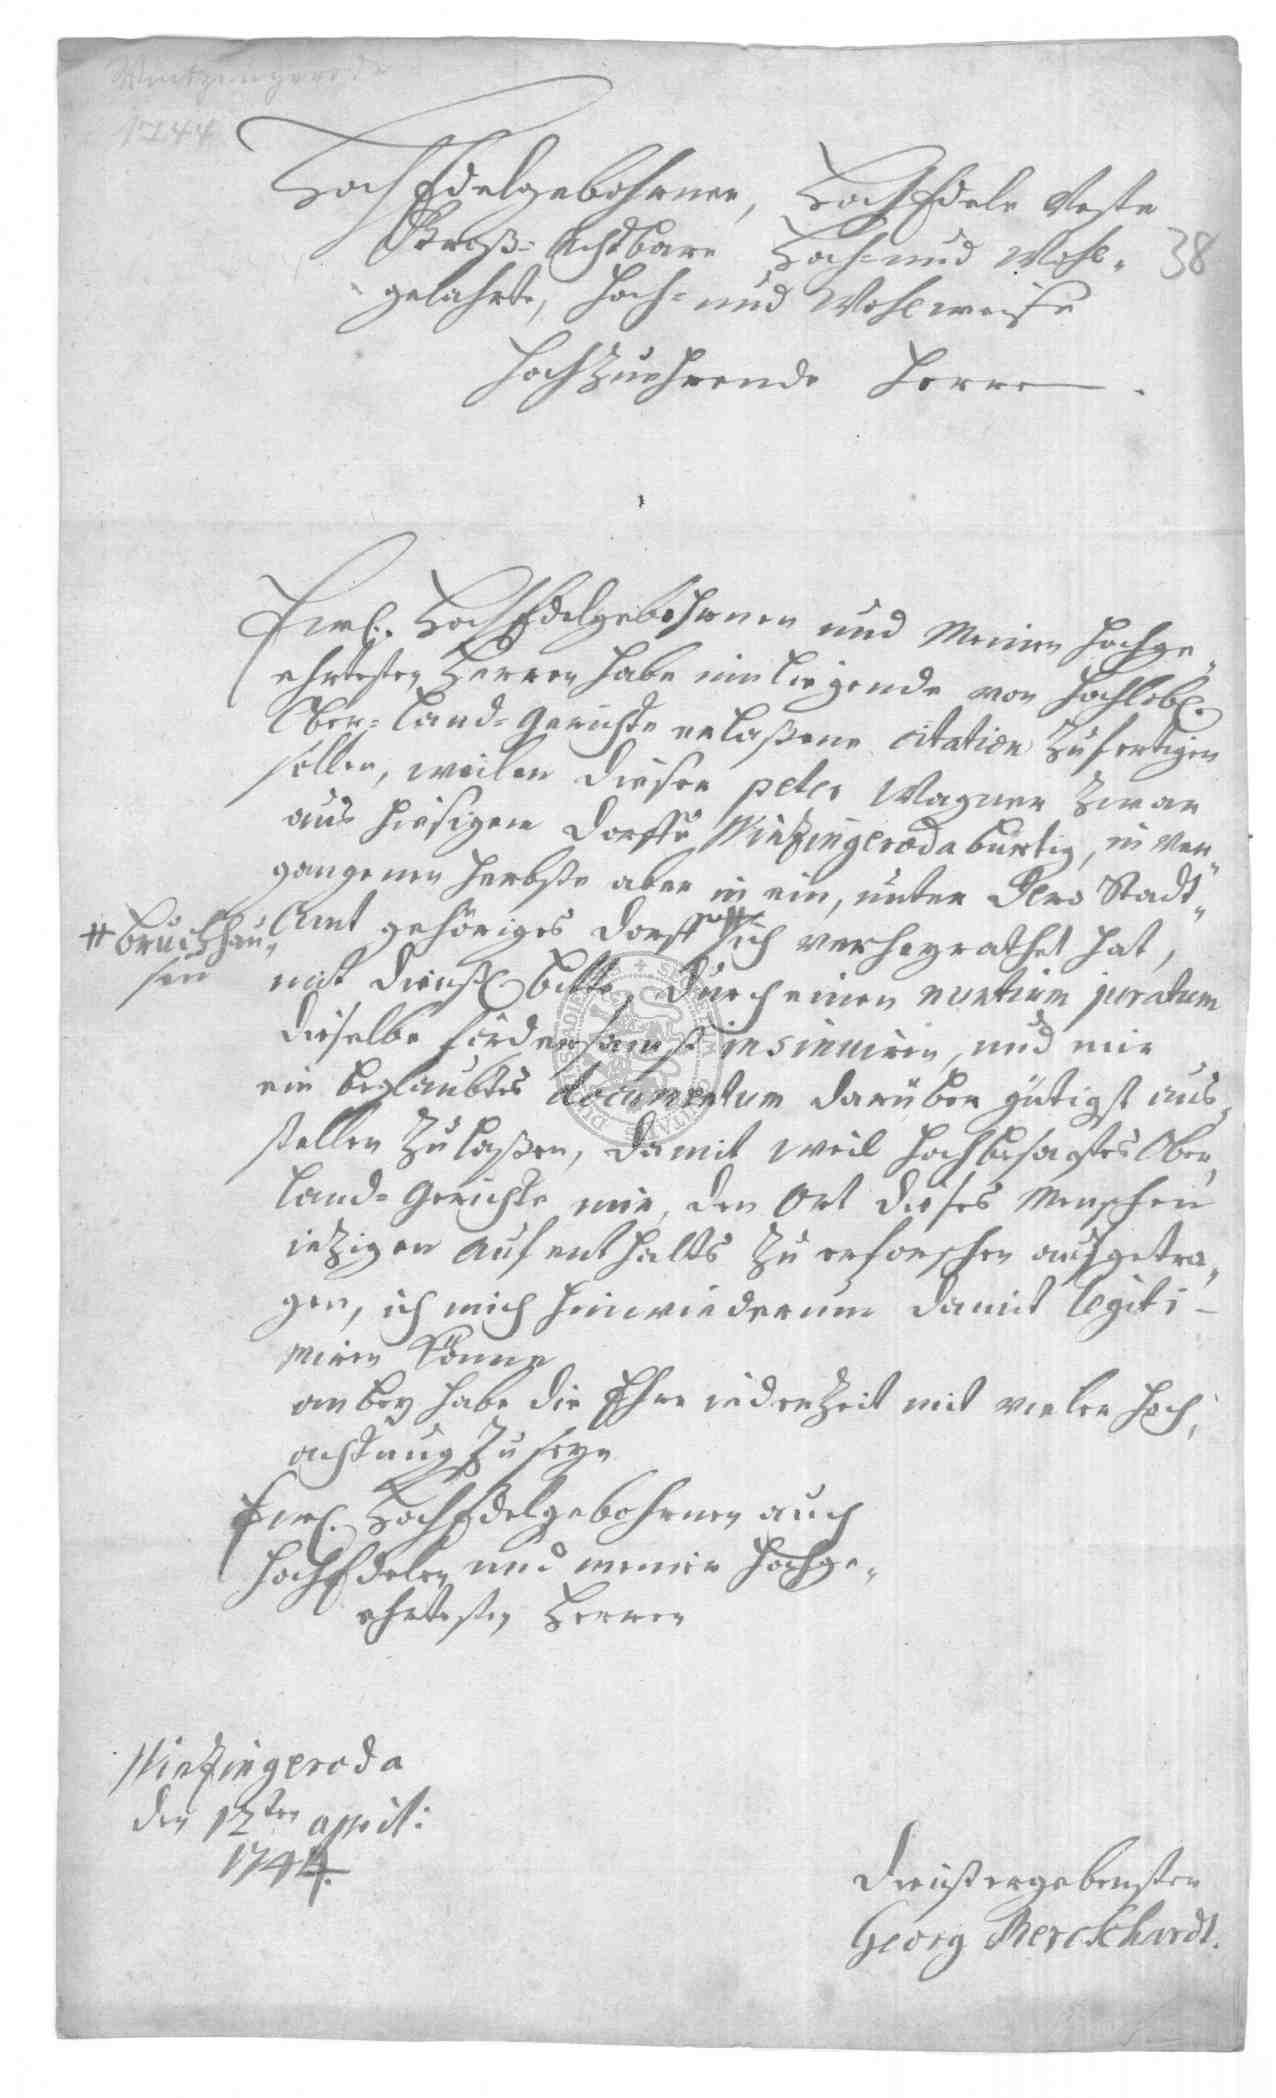 Wintzingerode
1744
38
HochEdelgebohrner, HochEdele Veste
Groß-Achtbare Hoch- und Wohl-
gelahrte, Hoch- und Wohlweise
HochZuEhrende Herren.
Ewl. HochEdelgebohrnen und Meinen Hochge-
ehrtesten Herren habe einliegende von Hochlobl.
Ober-Land-Gerichte erlaßene citation Zufertigen
sollen, weilen dieser peter Wagner zwar
aus hiesigem Dorffe Wintzingeroda burtig, in ver-
gangenen Herbste aber in ein, unter Dero Stadt-
Amt gehöriges Dorff # sich verheyrathet hat,
# Bruckhau-
sen
mit dienstl. bitte, durch einen nuntium juratum
dieselbe fördersamst insinuiren, und mir
ein beglaubtes documentum darüber gütigst aus-
stellen Zulaßen, damit weil Hochbesagtes Ober-
Land-Gerichte mir, den Ort dieses Menschen
ietzigen Aufenthalts zu erforschen aufgetra-
gen, ich mich hinwiederum damit legiti-
miren könne
anbey habe die Ehre iederZeit mit vieler Hoch-
achtung Zu seyn
Ewl. HochEdelgebohrnen auch
HochEdelen und meiner Hochge-
ehrtesten Herren
Wintzingeroda
den 12ten april:
1744.
Dienstergebenster
Georg Merckhardt.